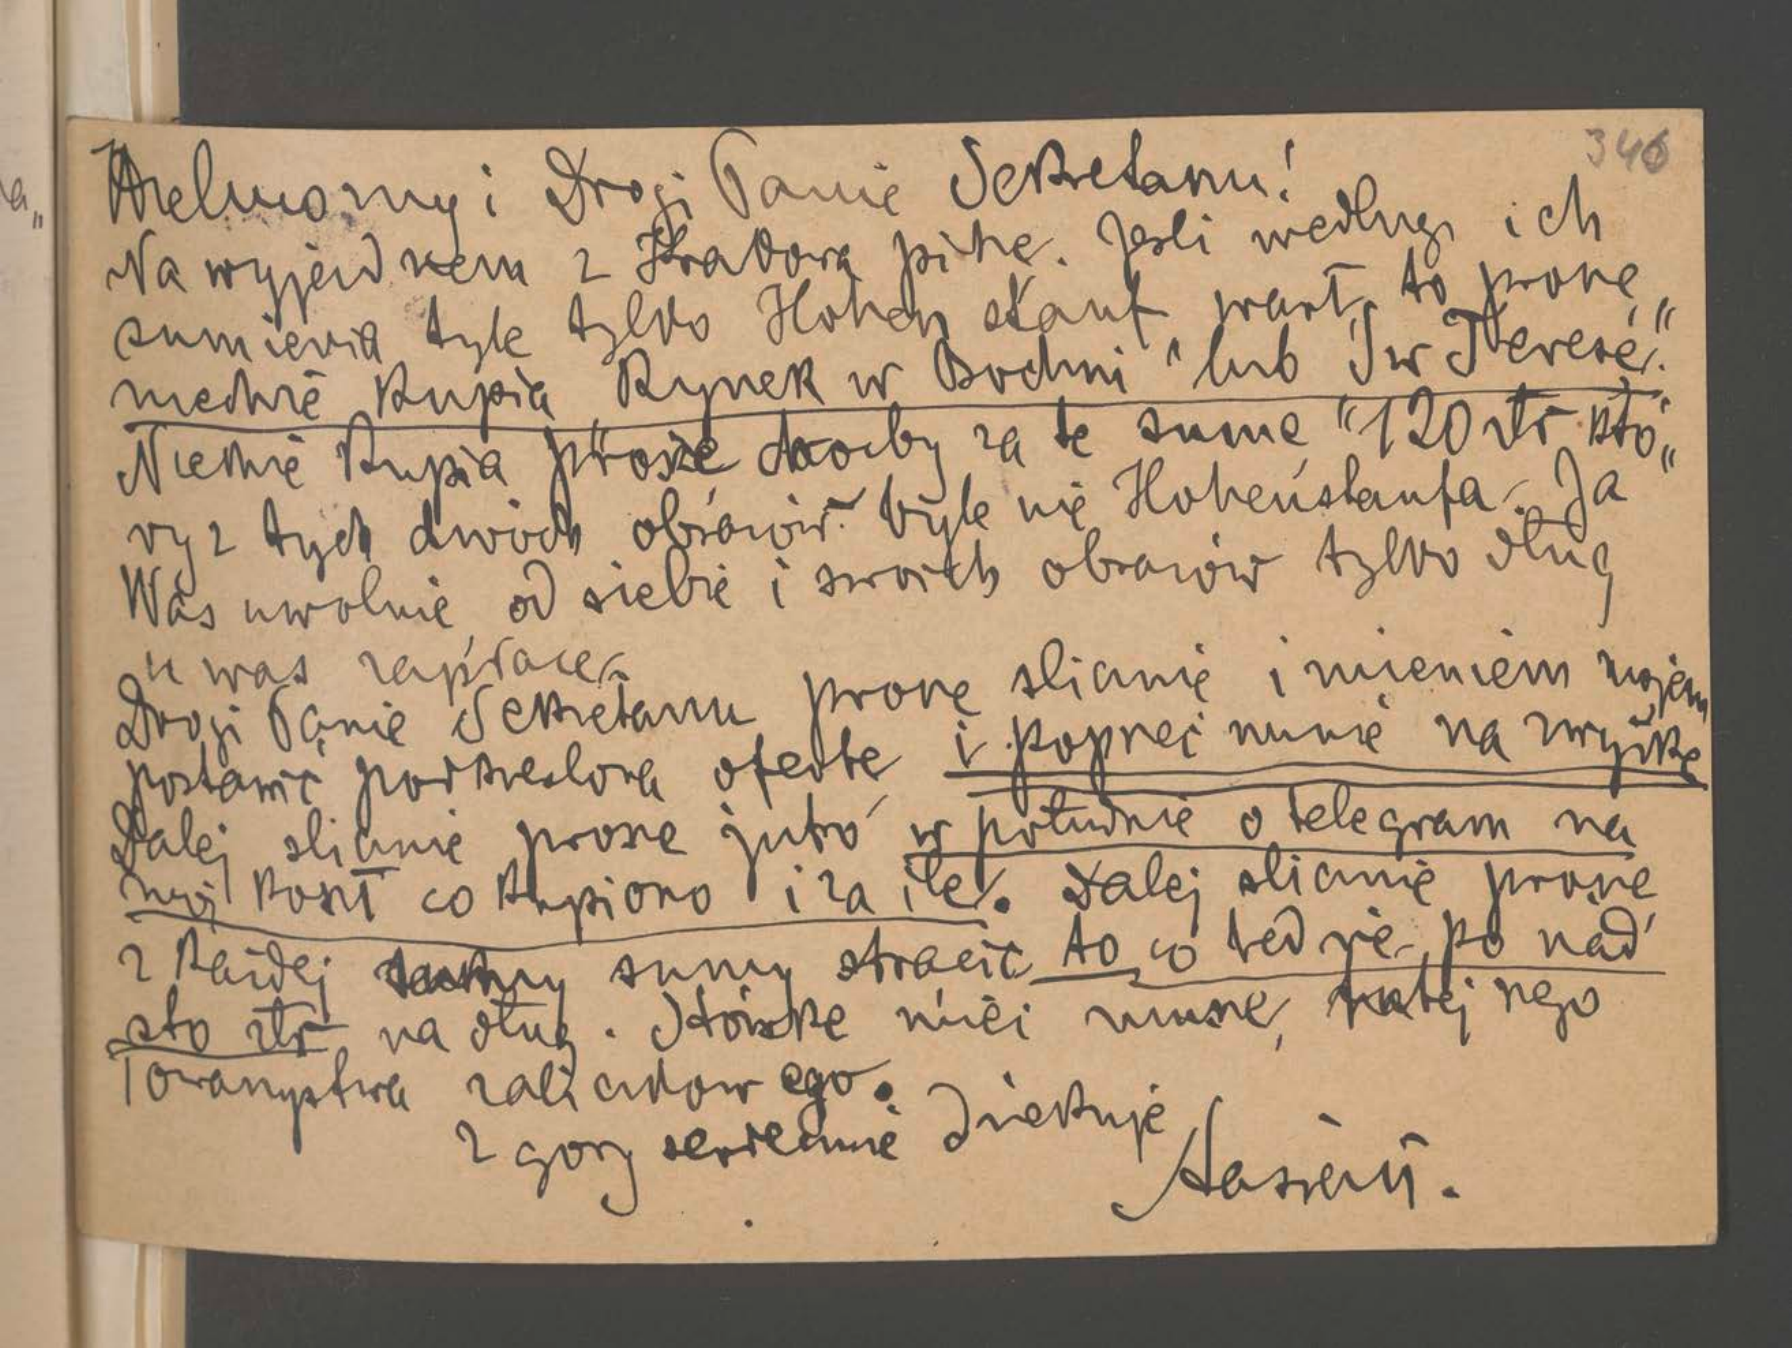 346
Wielmożny i Drogi Panie Sekretarzu!
Na wyjezdnem z Krakowa piszę. Jeśli według ich
sumienia tyle tylko Hohenstauf wart, to proszę
niechże kupią Rynek w Bochni" lub Św Teresę."
Niechże kupią proszę choćby za tę sumę "120 złr któ„
ry z tych dwóch obrazów byle nie Hohenstaufa. Ja
Was uwolnię od siebie i swoich obrazów tylko dług
u was zapłacę.
Drogi Panie Sekretarzu proszę ślicznie imieniem mojem
postawić podkreśloną ofertę i poprzeć mnie na zwyżkę
Dalej ślicznie proszę jutro w południe o telegram na
mój koszt co kupiono i za ile. Dalej ślicznie proszę
z każdej sumy strącić to co będzie po nad
sto złr na dług. Książkę mieć muszę, tutejszego
Towarzystwa zaliczkowego.
Z góry serdecznie dziękuję
Stasiak.